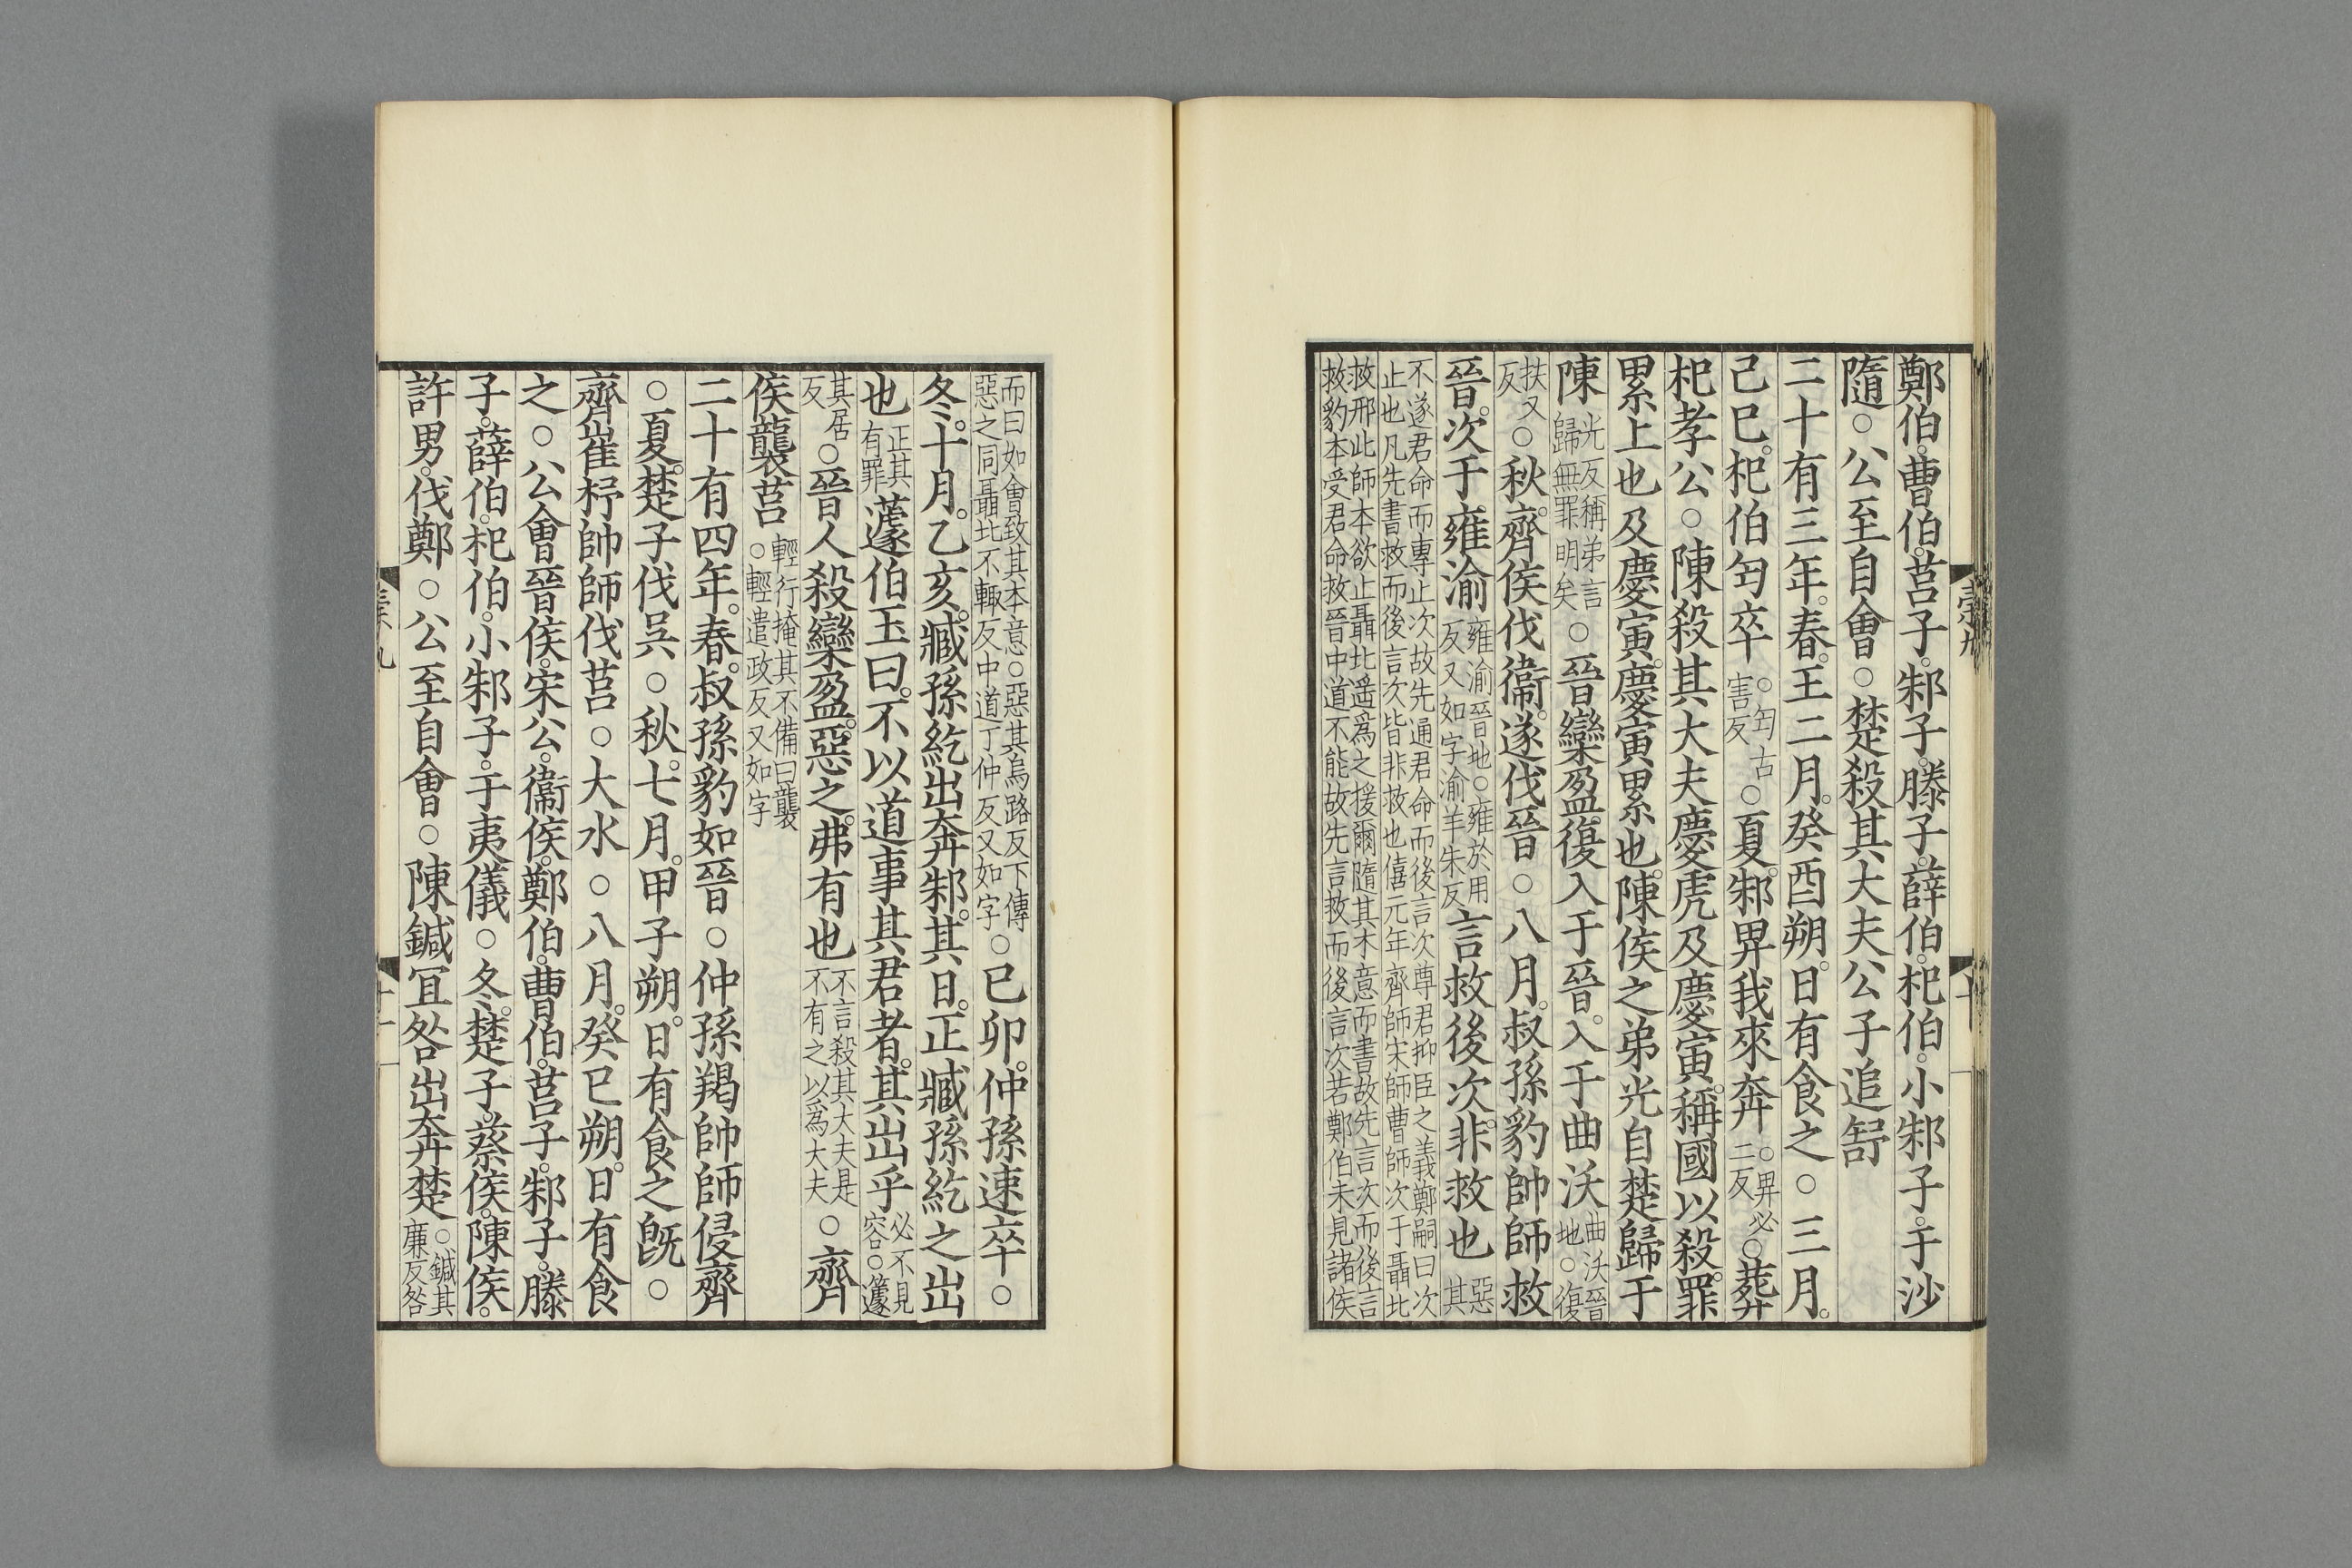 鄭伯。曹伯。莒子。邾子。滕子。薛伯。杞伯。小邾子。于沙
隨○公至自會○楚殺其大夫公子追舒
二十有三年。春。王二月。癸酉朔。日有食之○三月。
己巳。杞伯匄卒○匄古害反○夏。邾畀我來奔○畀必二反○葬
杞孝公○陳殺其大夫慶虎及慶寅。稱國以殺。罪
累上也及慶寅。慶寅累也。陳侯之弟光自楚歸于
陳光反稱弟言歸無罪明矣○晉欒盈。復入于晉。入于曲沃曲沃晉地○復
扶又反○秋。齊侯伐衞。遂伐晉○八月。叔孫豹帥師救
晉。次于雍渝雍渝晉地○雍於用反又如字渝羊朱反言救後次。非救也惡其
不遂君命而專止次故先通君命而後言次尊君抑臣之義鄭嗣曰次
止也凡先書救而後言次皆非救也僖元年齊師宋師曹師次于聶北
救邢此師本欲止聶北遥爲之援爾隨其本意而書故先言次而後言
救豹本受君命救晉中道不能故先言救而後言次若鄭伯未見諸侯
而曰如會致其本意○惡其烏路反下傳
惡之同聶北不輒反中道丁仲反又如字○己卯。仲孫速卒○
冬。十月。乙亥。臧孫紇出奔邾。其日。正臧孫紇之出
也正其有罪蘧伯玉曰。不以道事其君者。其出乎必不見容○蘧
其居反○晉人殺欒盈。惡之。弗有也不言殺其大夫是不有之以爲大夫○齊
侯襲莒輕行掩其不備曰襲○輕遣政反又如字
二十有四年。春。叔孫豹如晉○仲孫羯帥師侵齊
○夏。楚子伐吳○秋。七月。甲子朔。日有食之既○
齊崔杼帥師伐莒○大水○八月。癸巳朔。日有食
之○公會晉侯。宋公。衞侯。鄭伯。曹伯。莒子。邾子。滕
子。薛伯。杞伯。小邾子。于夷儀○冬。楚子。蔡侯。陳侯。
許男。伐鄭○公至自會○陳鍼宜咎出奔楚○鍼其廉反咎